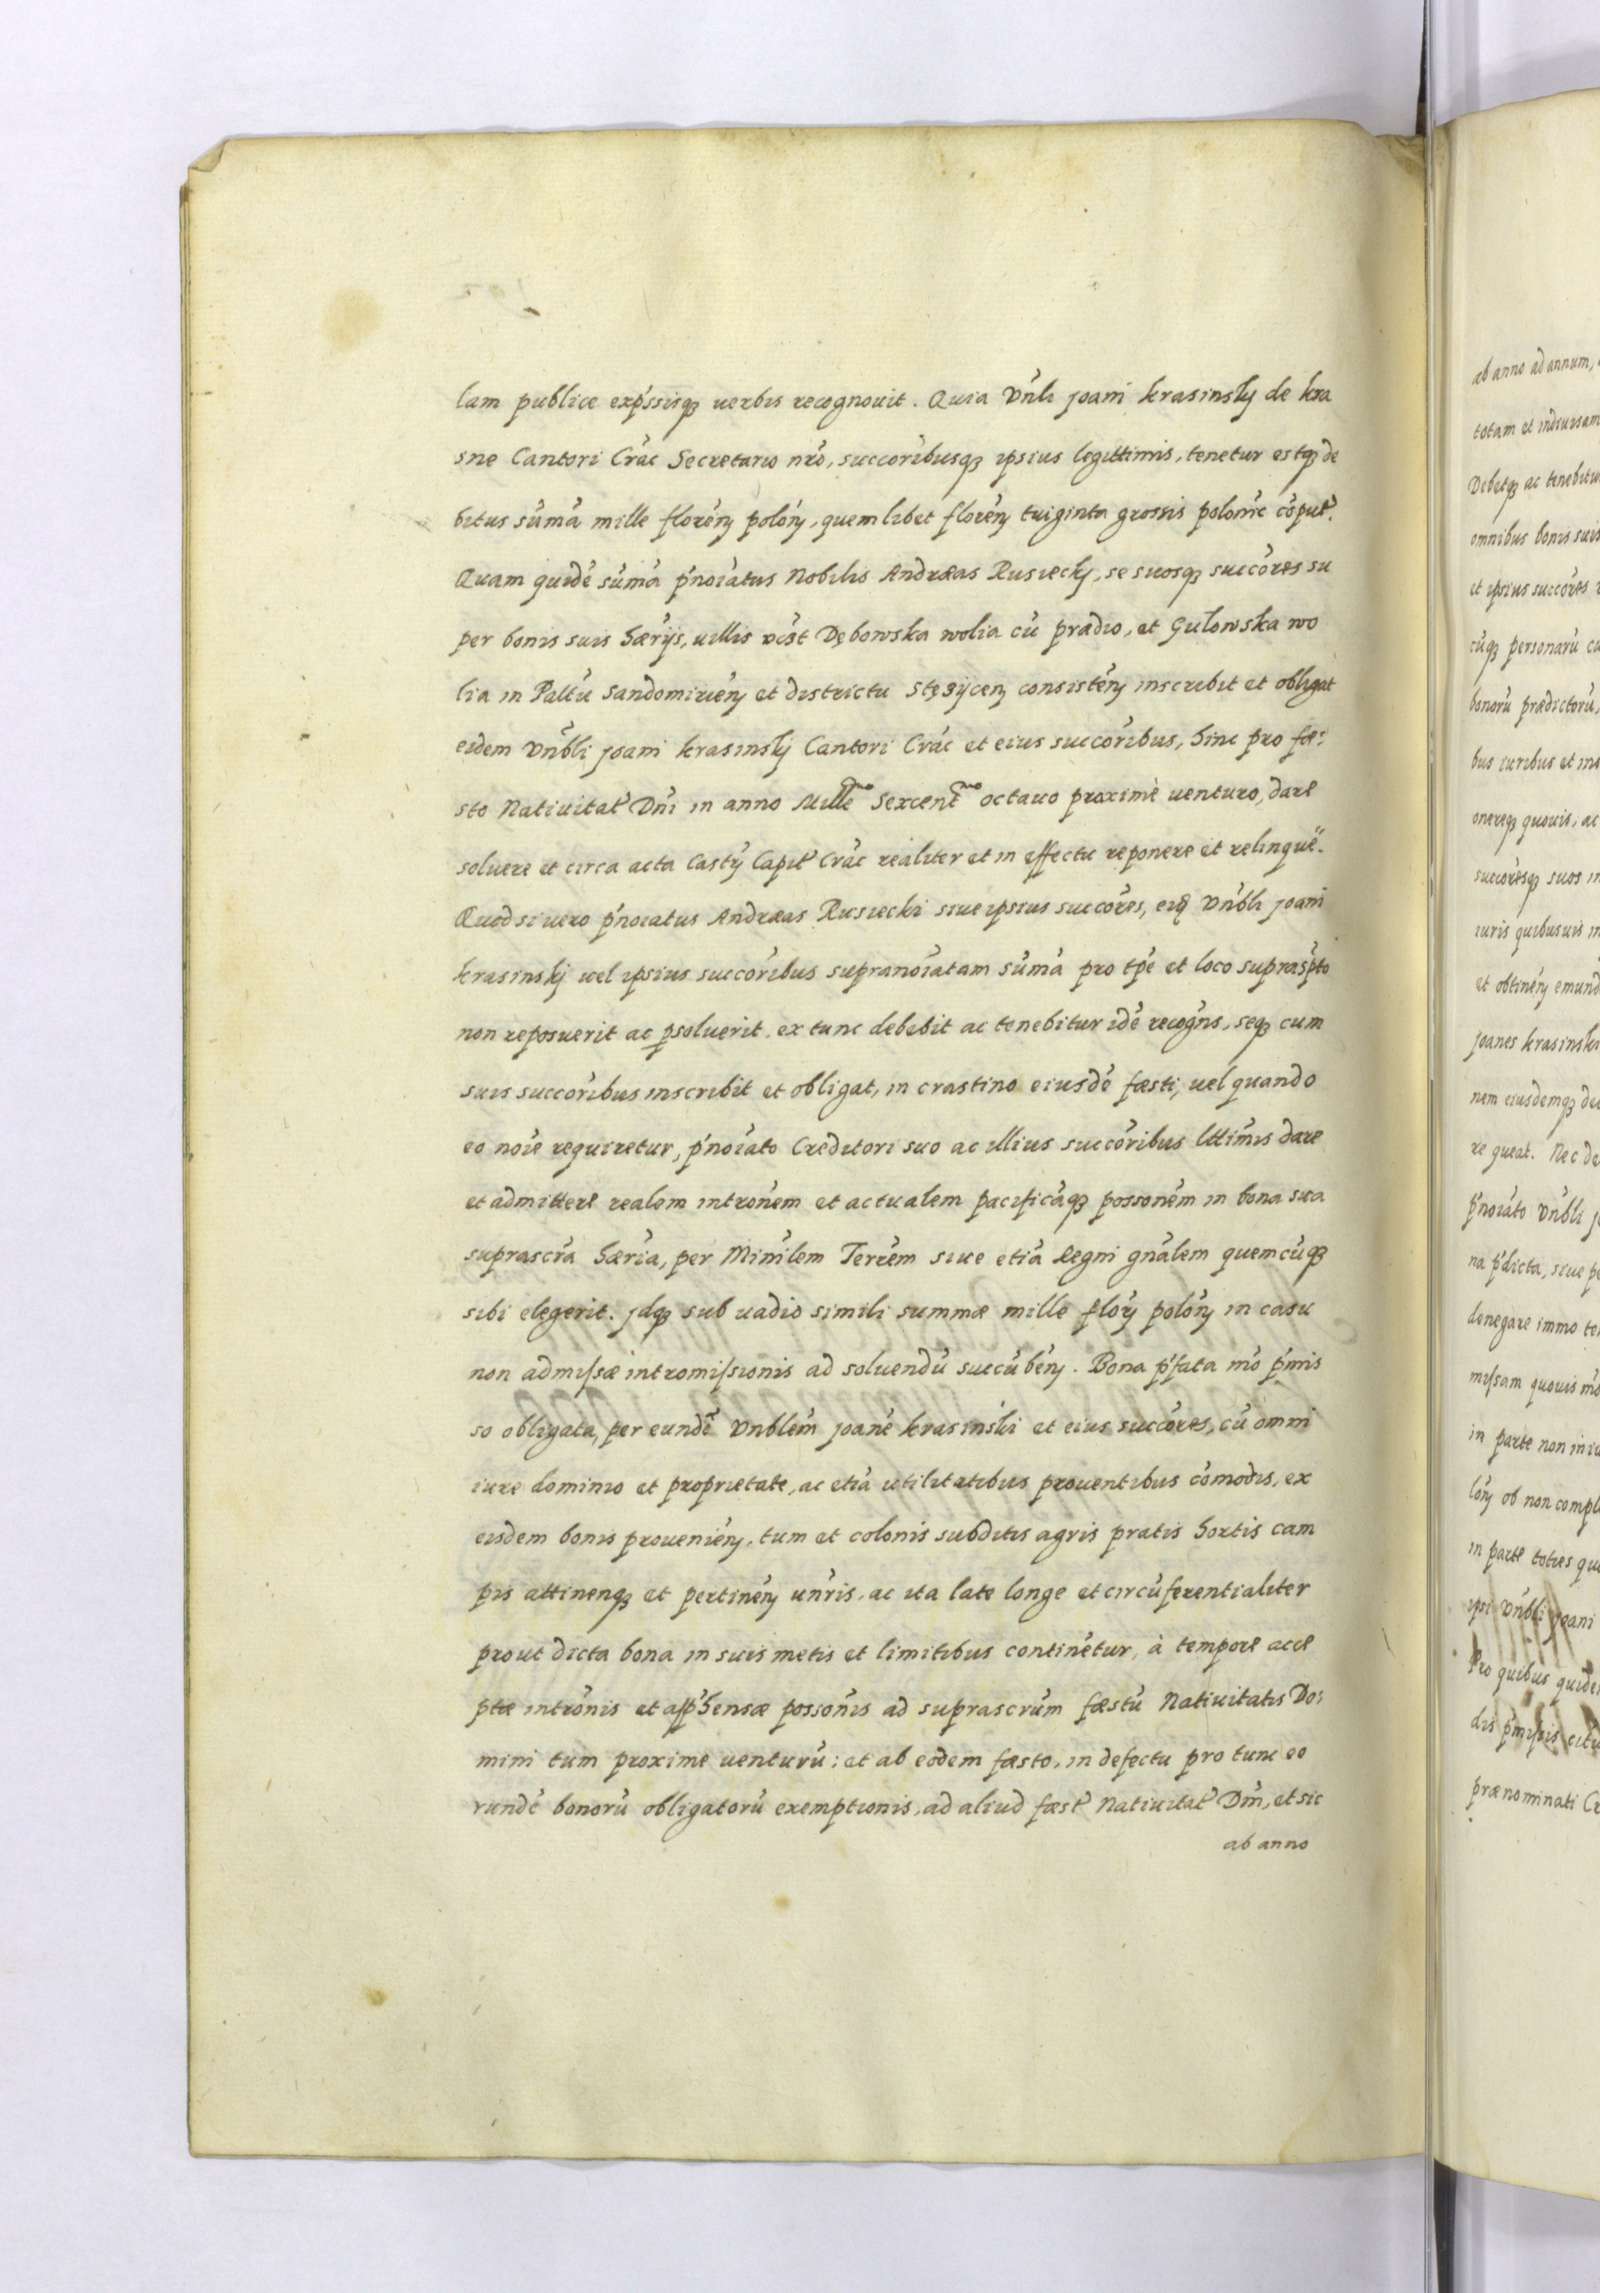 lam publice expŕssisqȝ verbis recognovit. Quia Vńli Joańi Krasinskj de Kra
sne Cantori Crác Secretario nŕo, succoŕibusqȝ ipsius legittimis, tenetur estqȝ de
bitus sum̃a mille floreń polóń, quemlibet floreń triginta grossis polonić cóput̃.
Quam quidé súmá ṕnoíatus Nobilis Andræas Rusieckj, se suosqȝ succóres su
per bonis suis hærijs, villis vićst Dębowska wolia cú prædio, et Gulowska wo
lia in Paltú Sandomirień et districtu Stężyceń consistéń inscribit et obligat
eidem Vńbli Joani Krasinskj Cantori Crác et eius succoŕibus, hinc pro fæ:
sto Nativitat̃ Dńi in anno Mill̃mo Sexcent̃mo octavo proximè venturo, dare
solvere et circa acta Castŕ Capit̃ Crác realiter et in effectu reponere et relinque̋.
Quod si vero ṕnoiatus Andræas Rusiecki sive ipsius succóres, eid́ Vńbli Joani
Krasinskj vel ipsius succoŕibus supranoíatam súmá pro tṕe et loco suprasṕto
non reposuerit ac psolverit. ex tunc debebit ac tenebitur idé recogńs, seqȝ cum
suis succoŕibus inscribit et obligat, in crastino eiusdé fæsti, vel quando
eo noíe requiretur, ṕnoiato Creditori suo ac illius succóribus lttímis dare
et admittere realem introńem et actualem pacificáqȝ possońém in bona sua
suprascŕa hæŕia, per Mińilem Terŕém sive etiá Regni gńalem quemcúqȝ
sibi elegerit. Jdqȝ sub vadio simili summæ mille flóŕ polóń in casu
non admissæ intromissionis ad solvendú succúbéń. Bona ṕfata mó ṕmis
so obligata, per eundé Vńblem Joané Krasinśki et eius succóres, cú omni
iure dominio et proprietate, ac etiá utilitatibus proventibus cómodis, ex
eisdem bonis provenień, tum et colonis subditis agris pratis hortis cam
pis attinenqȝ et pertinéń uńris, ac ita late longe et circúferentialiter
prout dicta bona in suis metis et limitibus continétur, à tempore acce
ptæ intróńis et apṕhensæ possońis ad suprascŕúm fæstú Nativitatis Do:
mini tum proxime venturú: et ab eodem fæsto, in defectu pro tunc eo
rundé bonorú obligatorú exemptionis, ad aliud fæst̃ Nativitat̃ Dńi, et sic
ab anno
ab anno ad annum,
totam et indivisam
Debetqȝ ac tenebitur
omnibus bonis suis
et ipsius succóres
cúqȝ personarú
bonorú prædictorú,
bus iuribus et
onereqȝ quovis, ac
succóresqȝ suos
iuris quibusvis
et obtinéń
Joanes Krasinski
nem eiusdemqȝ
re queat. Nec
ṕnoiáto Vńbli
na ṕdicta, sive
denegare immo
missam quovis
in parte non
lóń ob non
in parte toties
ipsi Vńbli Joani
Pro quibus
dis ṕmissis
prænominati